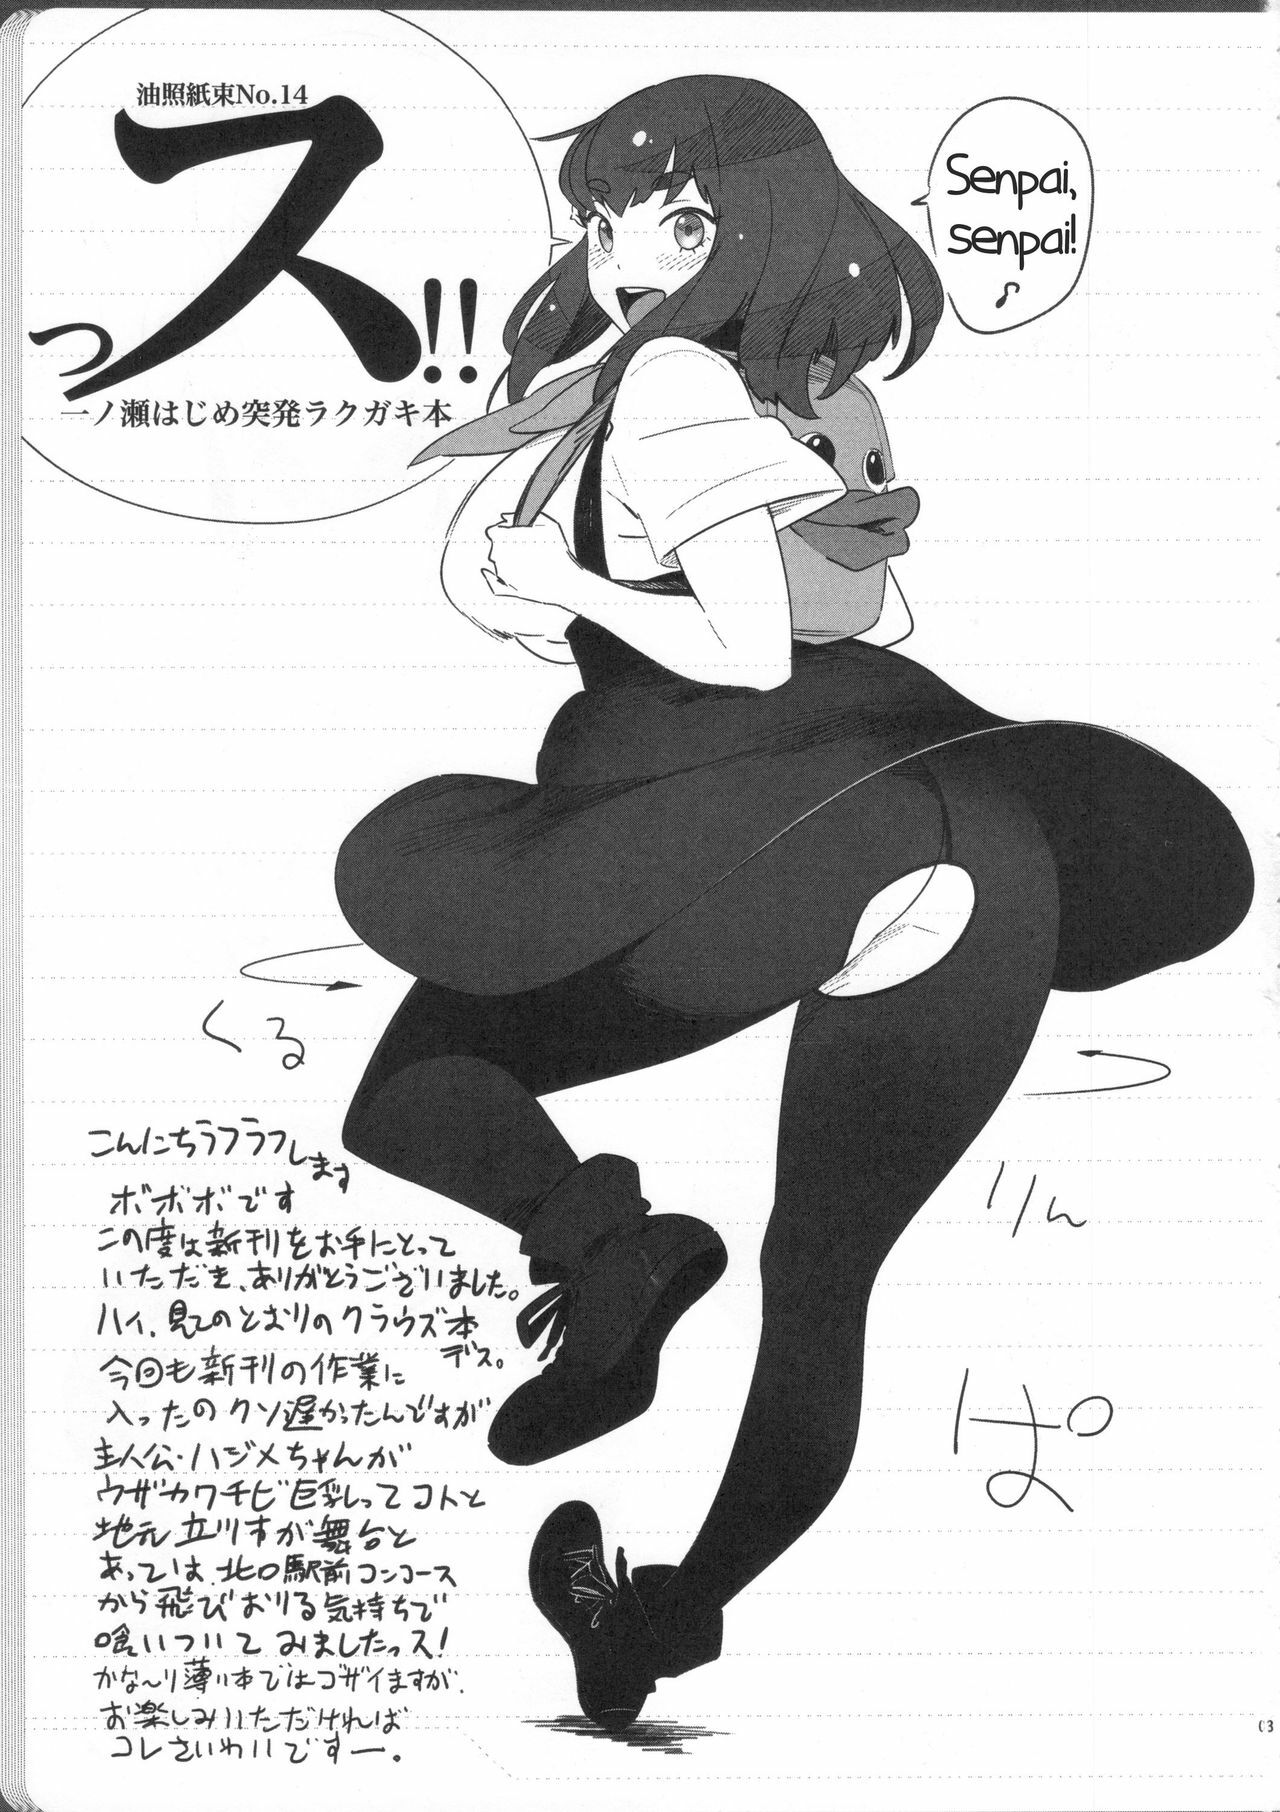 油照紙束No.14
っス!!
一ノ瀬はじめ突発ラクガキ本
Senpai,
senpai!
くる
りん
ぱ
こんにちラフラフします
ボボボです
この度は新刊をお手にとって
いただき、ありがとうございました。
ハイ、見てのとおりのクラウズ本
デス。
今回も新刊の作業に
入ったのクソ遅かったんですが
主人公・ハジメちゃんが
ウザカワチビ巨乳しってコトと
地元立川市が舞台と
あっては、北口駅前コンコース
から飛びおりる気持ちで
喰いついてみましたっス!
かな〜り薄い本ではゴザイますが、
お楽しみいただければ
コレさいわいですー。
03